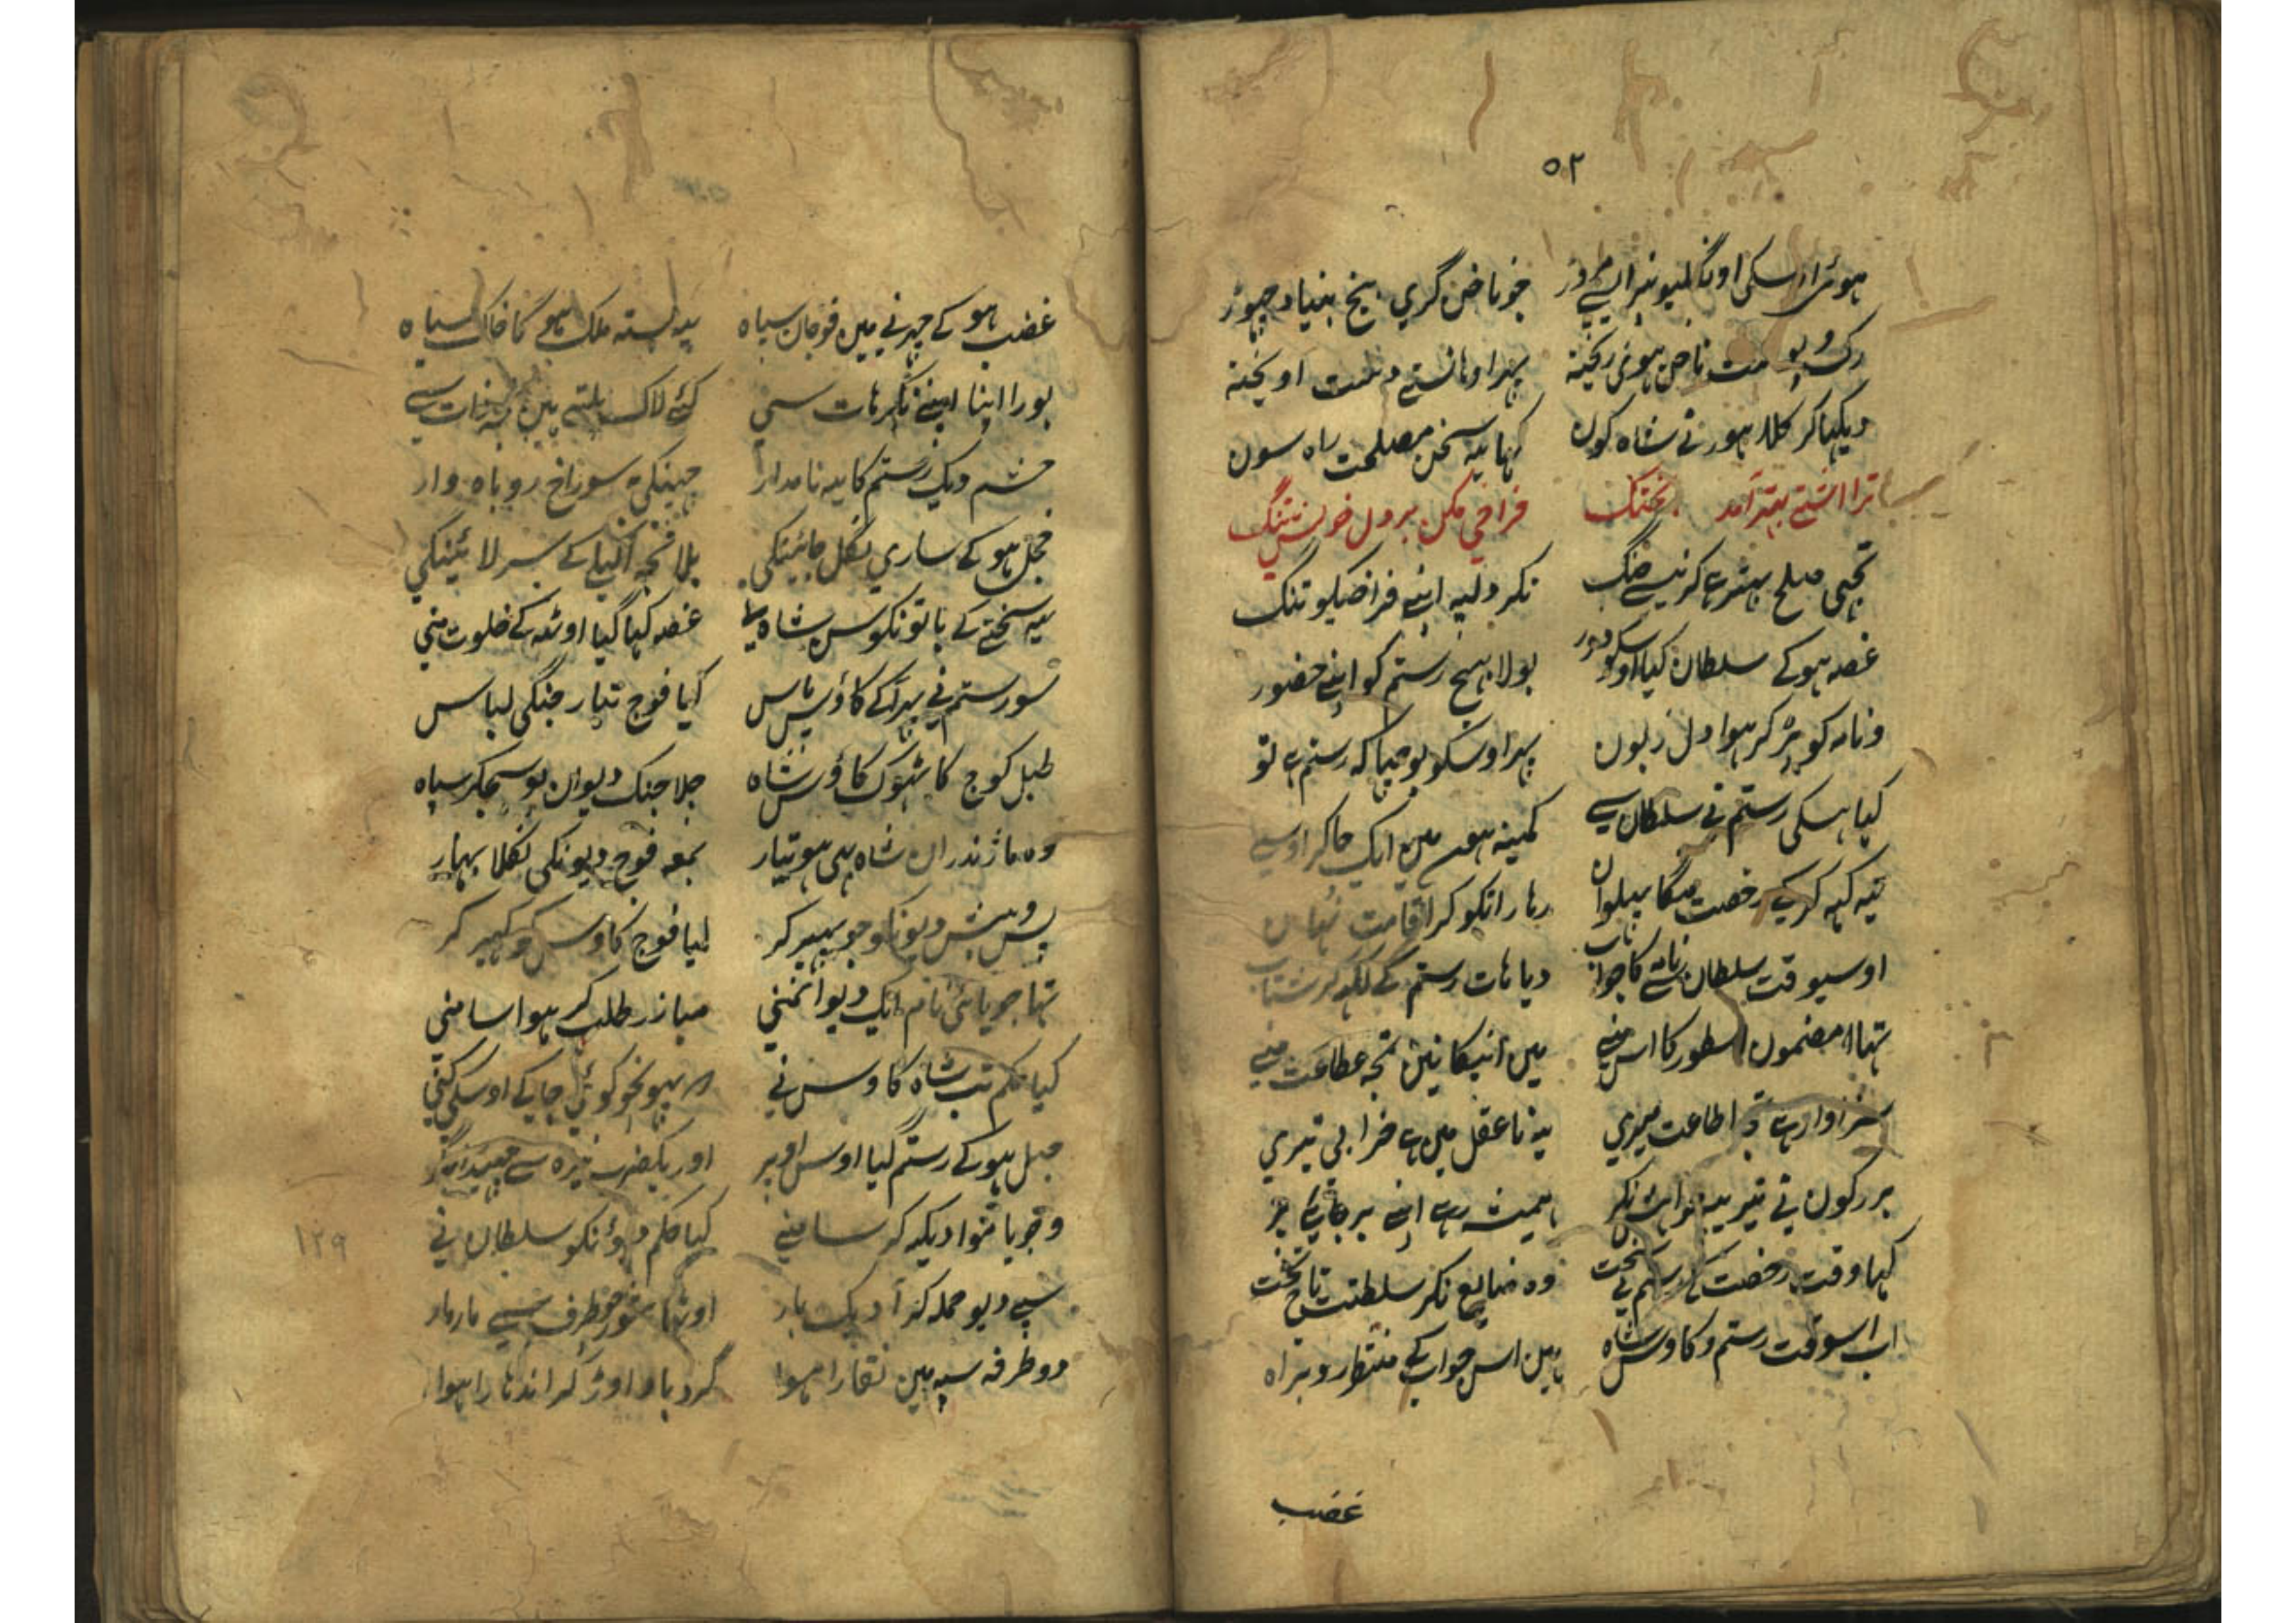 ۵۲
ہوئی اوسکی اونگلیونپر ایسے مروڑ جو ناخن گری بیخ بنیاد چھوڑ
رک و پوست ناخن ہوئی ریختہ پہر اوہانستے دست اویختہ
دیکہیا کر کلاہور نے شاہ کون کہا یہ سخن مصلحت راہ سون
ترا اشتی بہتر آمد زجنگ فراخی مکن بر دل خویش تنگ
تجہی صلح بہتر ہے کرنیسے جنگ نکر دلپہ اپنے فراخیکو تنگ
غصہ ہوکے سلطان کیا اوسکو دور بولا بہیج رستم کو اپنے حضور
و نامہ کو پڑ کر ہوا دل زبون پہر اوسکو پوچہا کہ رستم ہے تو
کہا ہسکی رستم نے سلطان سے کمینہ ہوں میں ایک چاکر اوسے
یہ کہہ کر کے رخصت منگا پہلوان رہا را نکو کر اقامت نہاں
اوسیوقت سلطان نامے کا جواب دیا ہات رستم کے لکہہ کر شتاب
تہا مضمون اسطور کا اس منے میں آنیکا نین تجہ عطاعت منے
سزاوار ہے تو اطاعت میری یہ نا عقل میں ہے خرابی تیری
بزرکون نے تیرے یہ نکر ہمیشہ رہے اپنے بر جائے پر
کہا وقت رخصت کے رستم نے وہ ضایع نکر سلطنت تاج تخت
اب اسوقت رستم و کاوس شاہ ہیں اس جواب کے منتظر رو براہ
غضب
غضب ہو کے چڑنے میں فوجان سیاہ یہ بستہ ملک ہوے گا خاک سیاہ
بورا اپنا اپنے نکر ہات سی کئے لاک پلتے ہیں تجہ ذات سے
حشم دیک رستم کا یہ نامدار چہپنیکے سوراخ روباہ وار
خجل ہو کے ساری نکل جائینکی بلا تجہ اکیلے کے سر لائینکی
یہ سختے کے باتو نکو سن شاہ غصہ کہا گیا اوٹہ کے خلوت منی
سو رستم نے پہر آکے کاؤس پاس کیا فوج تیار جنگی لباس
طبل کوچ کا ٹہوک کاؤس شاہ چلا جنگ دیوان پو سجکر سپاہ
وہ ماژندران شاہ بہی ہو تیار بمعہ فوج دیونکی نکلا بہار
پس و پیش دیونکو جو بہیر کر لیا فوج کاوس کو گہیر کر
تہا جریا سی نام ایک دیو انمنی مبازر طلب کر ہوا سامنی
کیا حکم تب شاہ کاوس نے پہونچو کوئی جاکے اوسکی کنی
چہل ہو کے رستم گیا اوس اوپر اور یک ضرب نیزہ سے
و جریا موا دیکہہ کر سامنے کیا حکم دیوانکو سلطان نے
سبے دیو حملہ کر آ یک بار اوٹہا شور ہر طرف سے مار مار
دو طرفہ سپہ میں نقارا ہوا گرد باد اوڑ کر اندہارا ہوا
۱۲۹